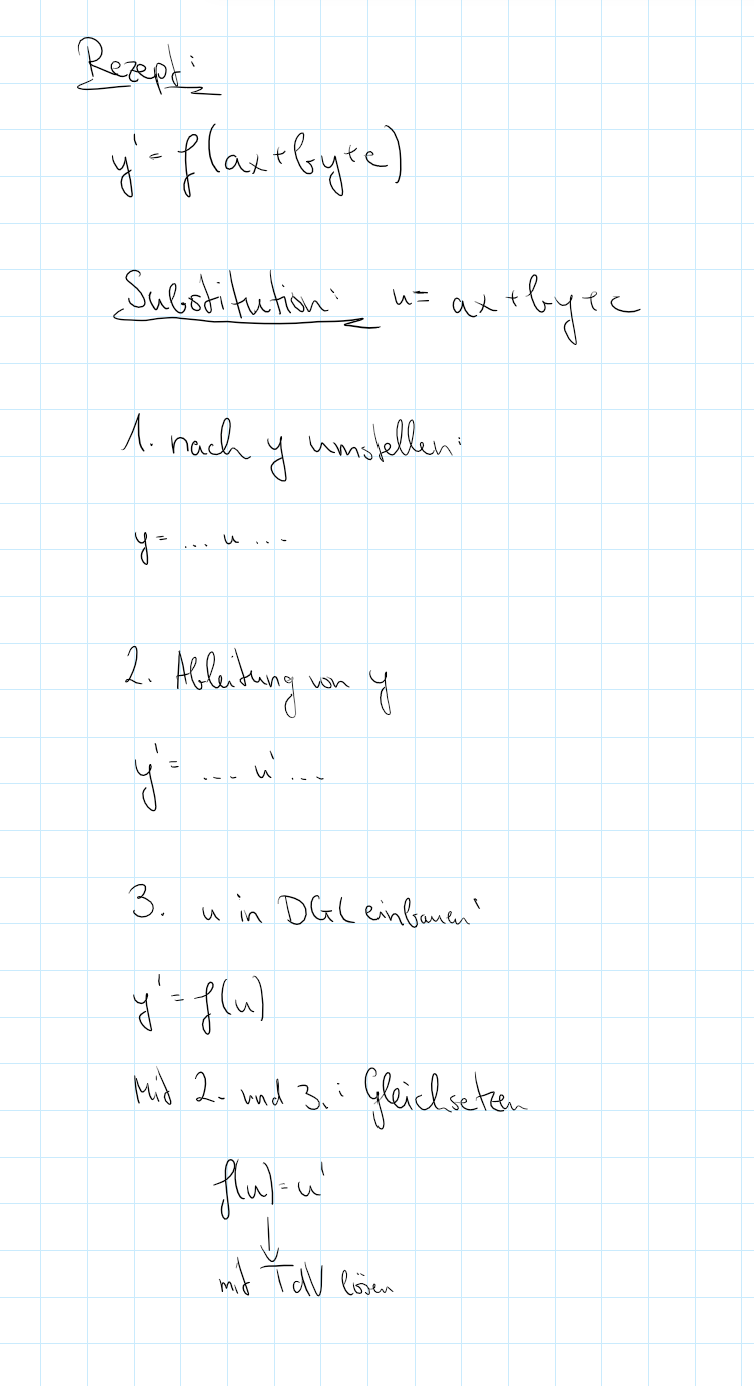 Rezept:
y' = f(ax+by+c)
Substitution: u= ax+by+c
1. nach y umstellen:
y= ... u ...
2. Ableitung von y
y' = .... u' ...
3. u in DGL einbauen'
y' = f(u)
Mit 2. und 3. : Gleichsetzen
f(u) = u'
↓
mit TdV lösen